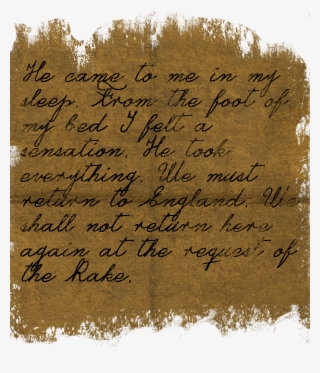 He came to me in my
sleep. From the foot of
my bed I felt a
sensation. He took
everything. We must
return to England. We
shall not return here
again at the request of
the Rake.